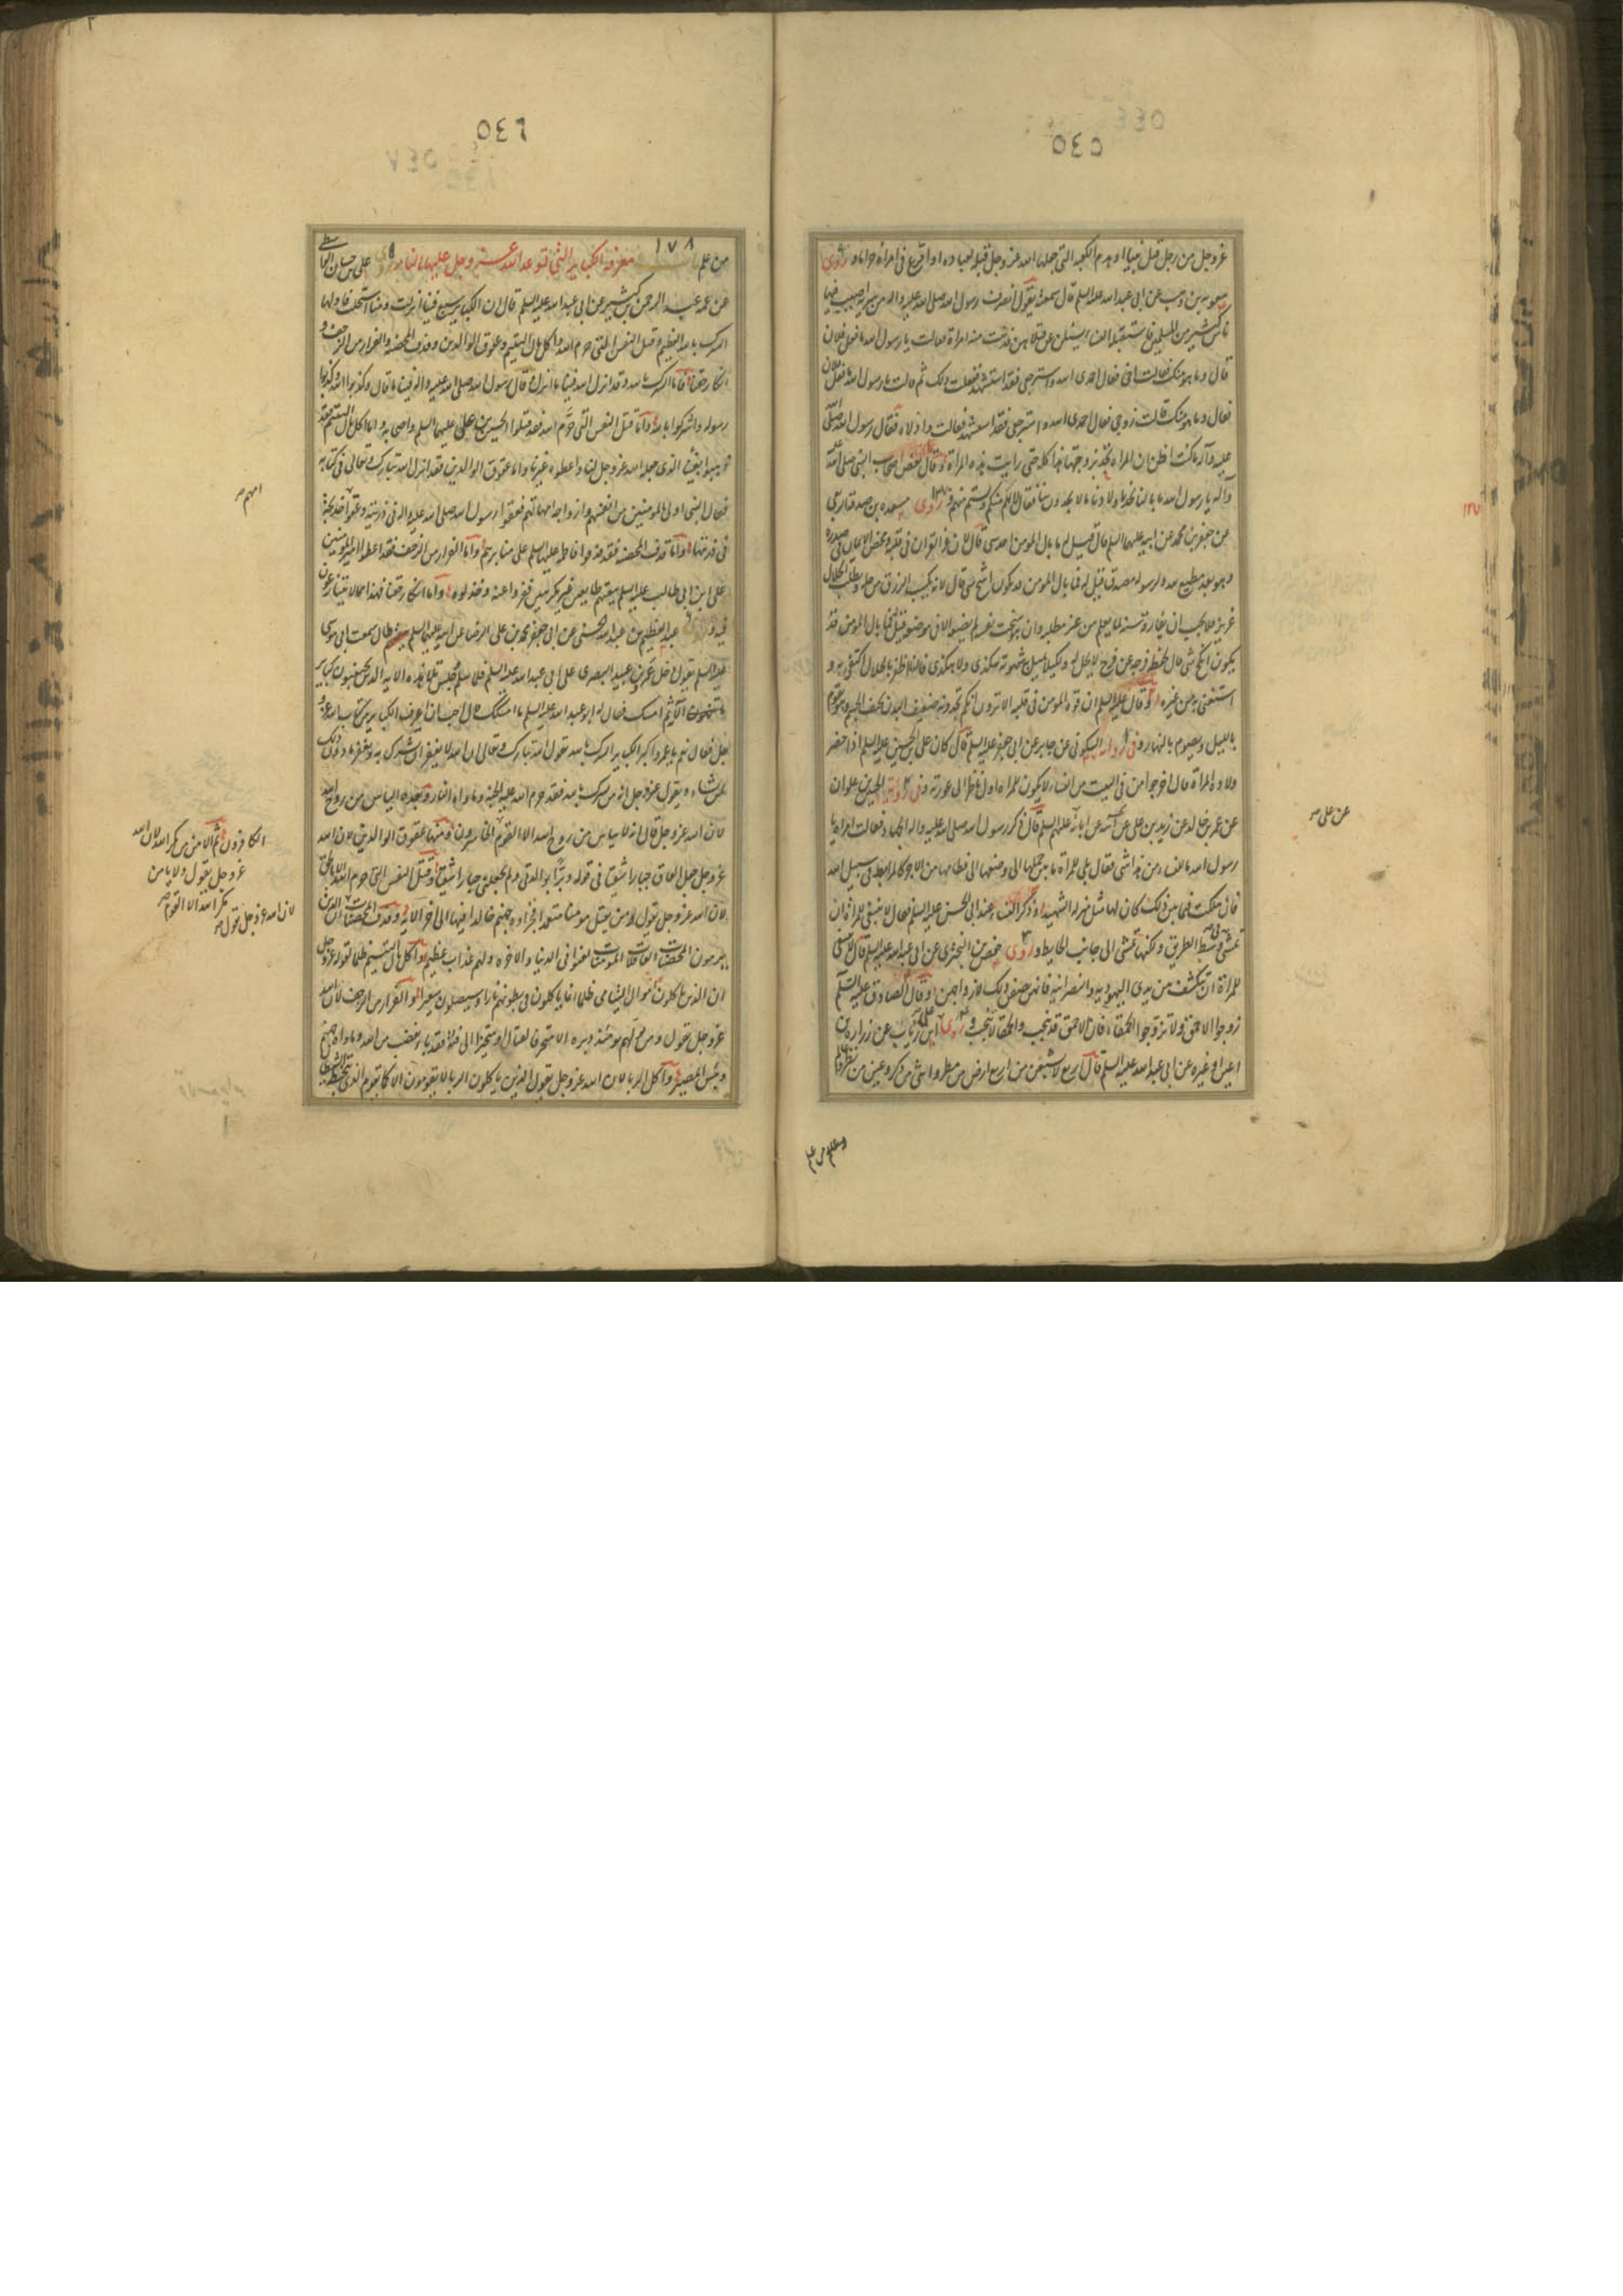 ٥٤٥
عز وجل من رجل قتل نبيا او هدم الكعبة التى جعلها الله عز وجل قبلة لعباده او افرغ فى امراة حراما وروى
معوية بن وهب عن ابى عبد الله عليه السلم قال سمعته يقول انصرف رسول الله صلى الله عليه واله من سرية اصيب فيها
ناس كثير من المسلمين فاستقبلته النساء يسئلن عن قتلاهن فدنت منه امراة فقالت يا رسول الله ما فعل فلان
قال وما هو منك فقالت اخى فقال احمدى الله واسترجعى فقد استشهد ففعلت ذلك ثم قالت يا رسول الله ما فعل فلان
فقال وما هو منك فقالت زوجى فقال احمدى الله واسترجعى فقد استشهد فقالت واذلاه فقال رسول الله صلى الله
عليه وآله ما كنت اظن ان المراة تجد بزوجها هذا كله حتى رايت هذه المراة وقال بعض اصحاب النبى صلى الله عليه
وآله يا رسول الله ما بالنا نجد باولادنا ما لا يجدون بنا فقال لانهم منكم ولستم منهم وروى مسعدة بن صدقة الربعى
عن جعفر بن محمد عن ابيه عليهما السلم قال قيل له ما بال المومن احد شى قال لان عز القران فى قلبه ومحض الايمان فى صدره
وهو بعد مطيع لله ولرسوله مصدق قيل له فما بال المومن قد يكون اشح شى قال لانه يكسب الرزق من حله ومطلب الحلال
عزيز فلا يحب ان يفارقه شيئه لما يعلم من عز مطلبه وان هو سخت نفسه لم يضعه الا فى موضعه قيل فما بال المومن قد
يكون انكح شى قال لحفظه فرجه عن فرج لا يحل له ولكيلا تميل به شهوته هكذى ولا هكذى فاذا ظفر بالحلال اكتفى به و
استغنى به عن غيره وقال عليه السلم ان قوة المومن فى قلبه الا ترون انكم تجدونه ضعيف البدن نحيف الجسم وهو يقوم
بالليل ويصوم بالنهار وفى رواية السكونى عن جابر عن ابى جعفر عليه السلم قال كان على بن الحسين عليه السلم اذا حضر
ولادة المراة قال اخرجوا من فى البيت من النساء لا يكون المراة اول ناظر الى عورته وفى رواية الحسين بن علوان
عن عمر بن خالد عن زيد بن على عن آبائه عليهم السلم قال ذكر رسول الله صلى الله عليه واله الجهاد فقالت امراة يا
عن على صح
رسول الله ما للنساء من هذا شى فقال بلى للمراة ما بين حملها الى وضعها الى فطامها من الاجر كالمرابط فى سبيل الله
فان هلكت فيما بين ذلك كان لها مثل منزلة الشهيد وذكر النساء عند ابى الحسن عليه السلم فقال لا ينبغى للمراة ان
تمشى فى وسط الطريق ولكنها تمشى الى جانب الحايط وروى حفص بن البخترى عن ابى عبد الله عليه السلم قال لا ينبغى
للمراة ان تنكشف من يدى اليهودية والنصرانية فانهن يصفن ذلك لازواجهن وقال الصادق عليه السلم
زوجوا الاحمق ولا تزوجوا الحمقاء فان الاحمق قد ينجب والحمقاء لا تنجب وروى على بن رئاب عن زرارة بن
اعين او غيره عن ابى عبد الله عليه السلم قال اربع لا يشبعن من اربع ارض من مطر وانثى من ذكر وعين من نظر وعالم
٥٤٦
من علم ١٧٨ معرفة الكباير التى توعد الله عز وجل عليها بالنار روى على بن حسان الواسطى
عن عمه عبد الرحمن بن كثير عن ابى عبد الله عليه السلم قال ان الكباير سبع فينا انزلت ومنا استحلت فاولها
الشرك بالله العظيم وقتل النفس التى حرم الله واكل مال اليتيم وعقوق الوالدين وقذف المحصنة والفرار من الزحف و
انكار حقنا فاما الشرك بالله وقد انزل الله فينا ما انزل وقال رسول الله صلى الله عليه واله فينا ما قال وكذبوا الله وكذبوا
رسوله واشركوا بالله واما قتل النفس التى حرم الله فقد قتلوا الحسين بن على عليهما السلم واصحابه واما اكل مال اليتيم فقد
ذهبوا بفيئنا الذى جعله الله عز وجل لنا واعطوه غيرنا واما عقوق الوالدين فقد انزل الله تبارك وتعالى فى كتابه
فقال النبى اولى بالمومنين من انفسهم وازواجه امهاتهم فعقوا رسول الله صلى الله عليه واله فى ذريته وعقوا خديجة
امهم صح
فى ذريتها واما قذف المحصنة فقد قذفوا فاطمة عليها السلم على منابرهم واما الفرار من الزحف فقد اعطوا امير المومنين
على ابن ابى طالب عليه السلم بيعتهم طايعين غير مكرهين ففروا عنه وخذلوه واما انكار حقنا فهذا مما لا يتنازعون
فيه وروى عبد العظيم بن عبد الله الحسنى عن ابى جعفر محمد بن على الرضا عن ابيه عليهما السلم قال سمعت ابى موسى
عليه السلم يقول دخل عمرو بن عبيد البصرى على ابى عبد الله عليه السلم فلما سلم وجلس تلا هذه الاية الذين يجتنبون كبائر
الاثم ثم امسك فقال له ابو عبد الله عليه السلم ما اسكتك قال احب ان اعرف الكباير من كتاب الله عز و
جل فقال نعم يا عمرو اكبر الكباير الشرك بالله يقول الله تبارك وتعالى ان الله لا يغفر ان يشرك به ويغفر ما دون ذلك
لمن يشاء ويقول عز وجل انه من يشرك بالله فقد حرم الله عليه الجنة وماواه النار وبعده الياس من روح الله
لان الله عز وجل قال انه لا يياس من روح الله الا القوم الخاسرون ومنها عقوق الوالدين لان الله
الكافرون ثم الامن من مكر الله لان الله
عز وجل يقول ولا يامن
مكر الله الا القوم صح
لان الله عز وجل يقول صح
عز وجل جعل العاق جبارا شقيا فى قوله وبرا بوالدتى ولم يجعلنى جبارا شقيا وقتل النفس التى حرم الله الا بالحق
لان الله عز وجل يقول ومن يقتل مومنا متعمدا فجزاؤه جهنم خالدا فيها الى اخر الاية وقذف المحصنات ان الذين
يرمون المحصنات الغافلات المومنات لعنوا فى الدنيا والاخرة ولهم عذاب عظيم واكل مال اليتيم ظلما لقوله عز وجل
ان الذين ياكلون اموال اليتامى ظلما انما ياكلون فى بطونهم نارا وسيصلون سعيرا والفرار من الزحف لان الله
عز وجل يقول ومن يولهم يومئذ دبره الا متحرفا لقتال او متحيزا الى فئة فقد باء بغضب من الله وماواه جهنم
وبئس المصير واكل الربا لان الله عز وجل يقول الذين ياكلون الربا لا يقومون الا كما يقوم الذى يتخبطه الشيطان